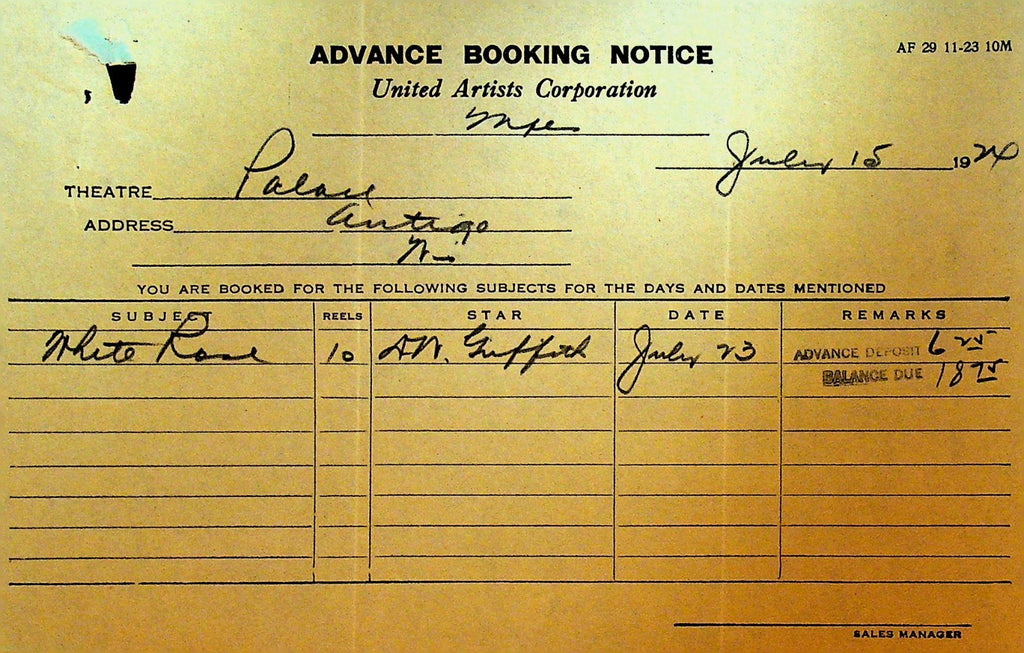 AF 29 11-23 10M
ADVANCE BOOKING NOTICE
United Artists Corporation
July 15 1924
THEATRE Palace
ADDRESS Antigo
Wis
YOU ARE BOOKED FOR THE FOLLOWING SUBJECTS FOR THE DAYS AND DATES MENTIONED
SUBJECT REELS STAR DATE REMARKS
White Rose 10 D.W. Griffith July 23 ADVANCE DEPOSIT 6 25
BALANCE DUE 18 75
SALES MANAGER